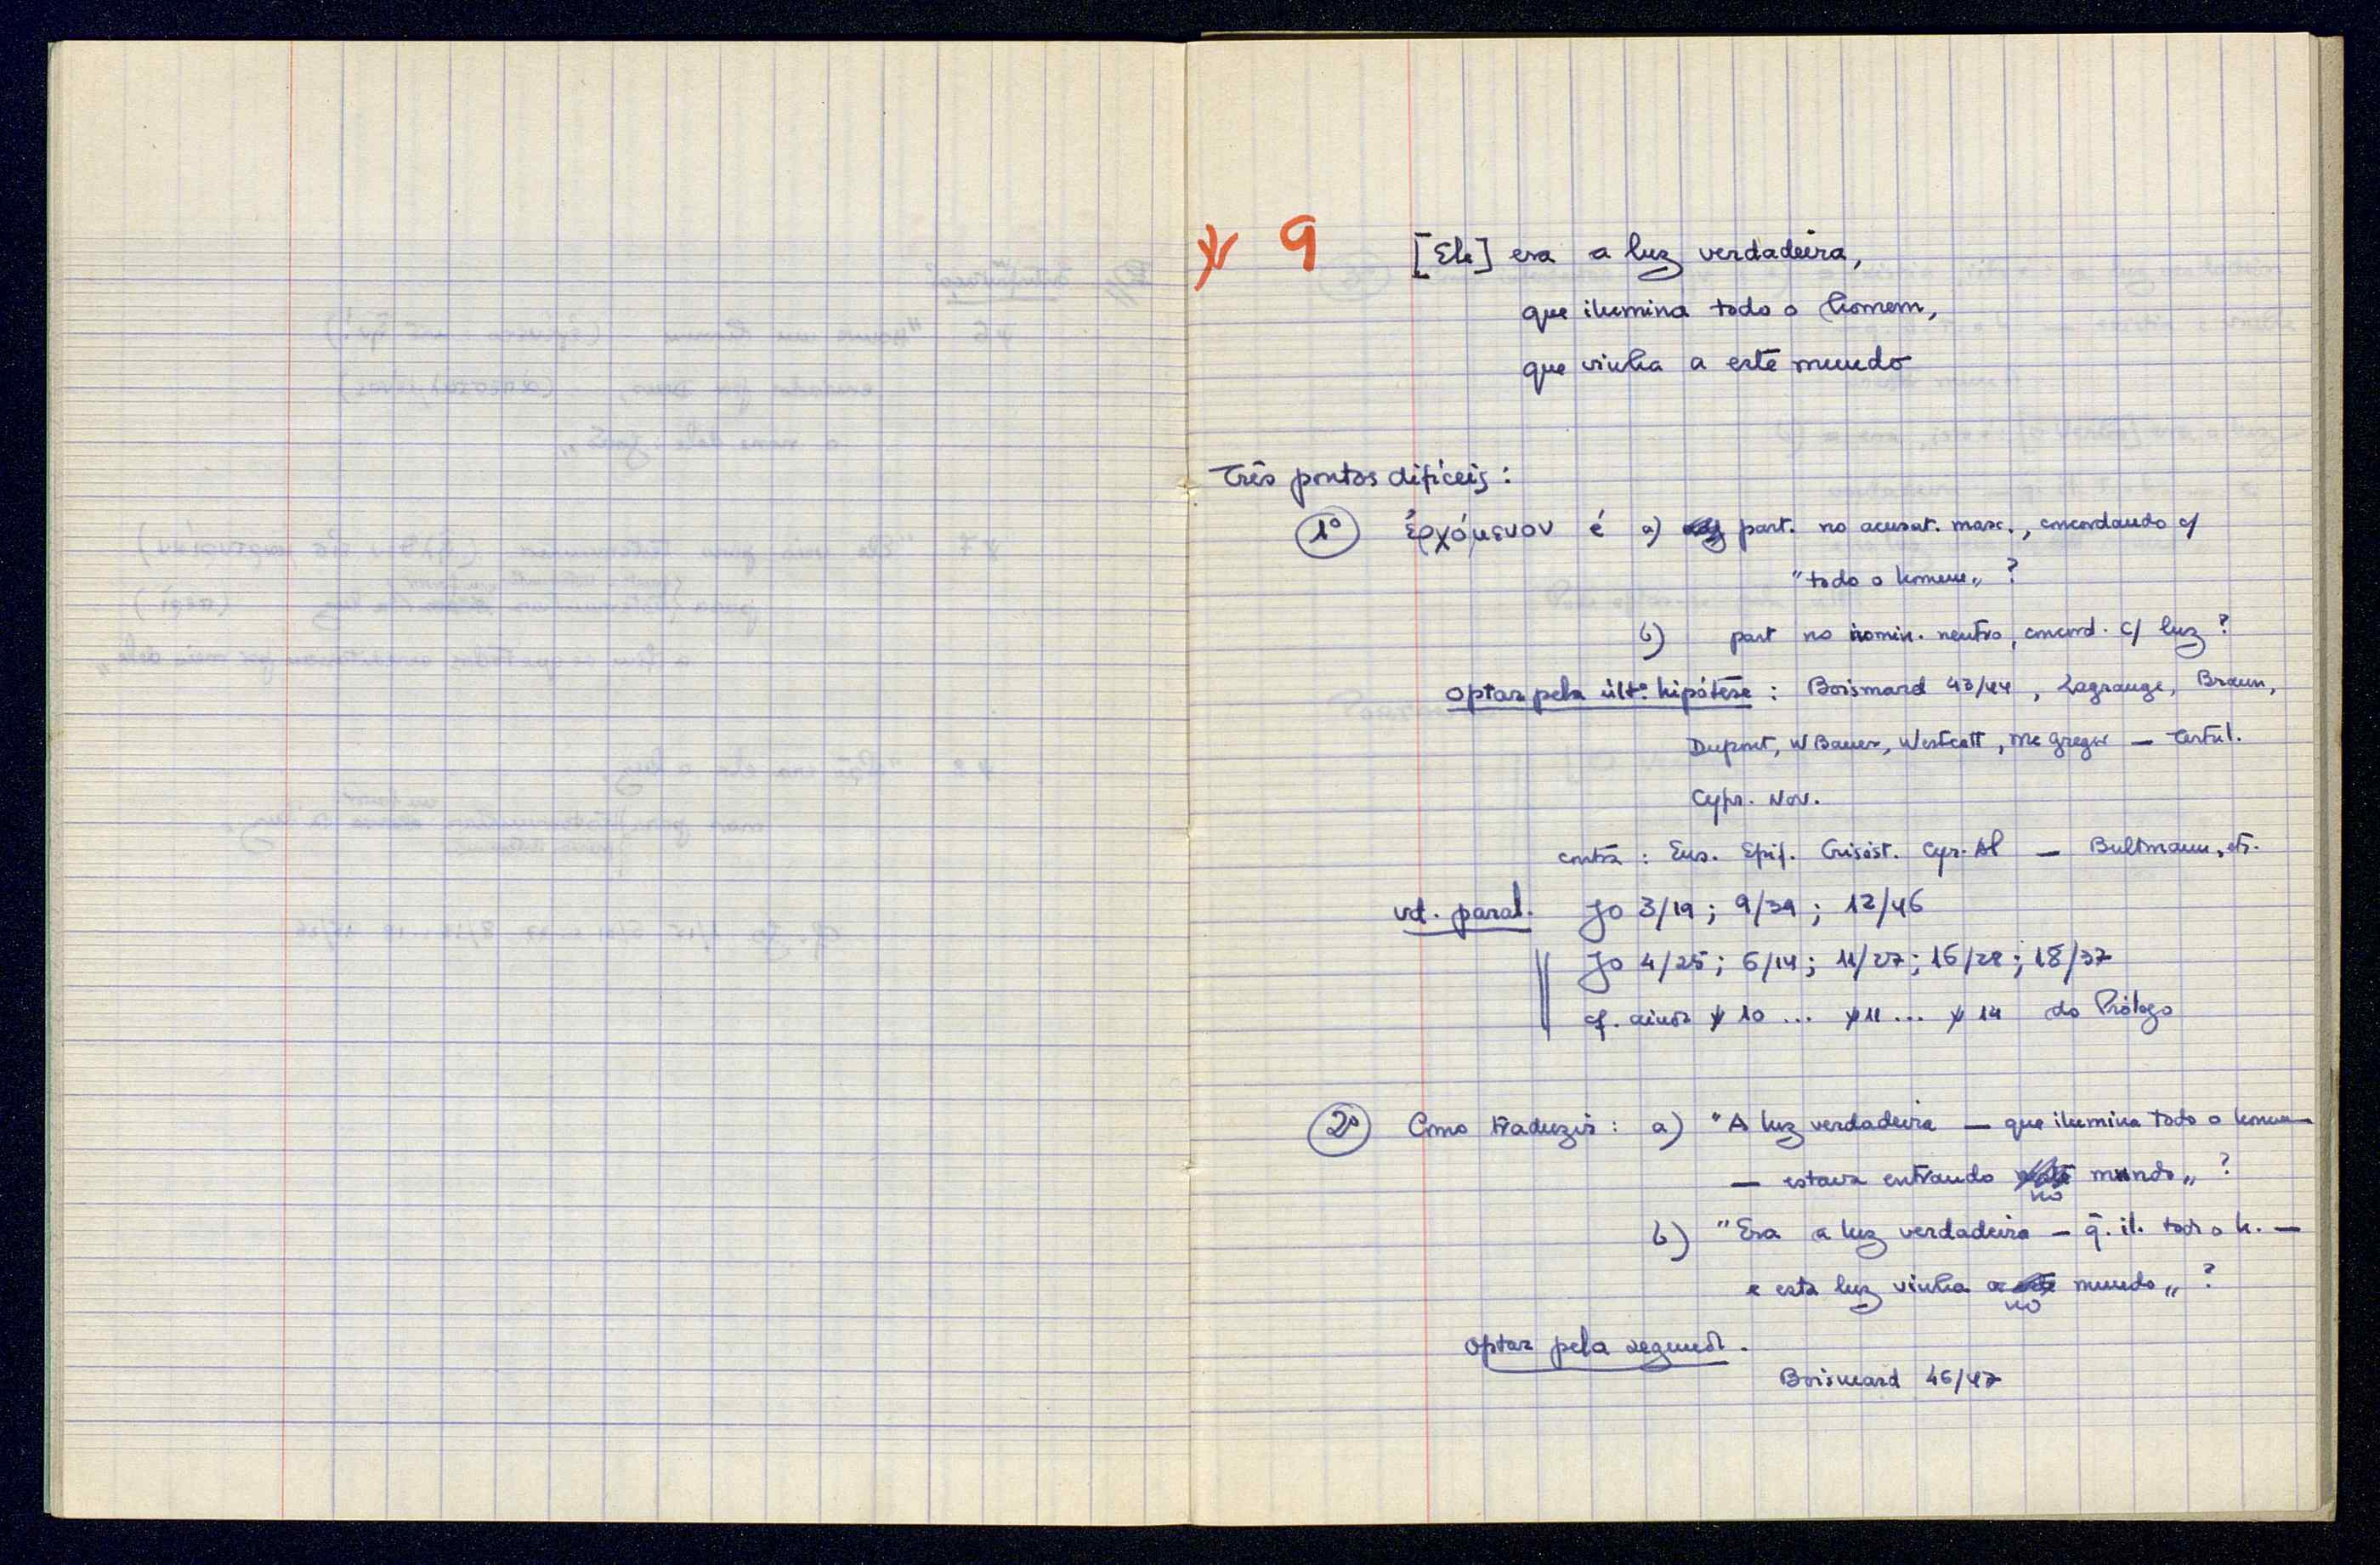 ℣ 9 [Ele] era a luz verdadeira,
que ilumina todo o homem,
que vinha a este mundo
Três pontos difíceis:
1º ἐρχόμενον é a) part. no acusat. masc., concordando c/
"todo o homem" ?
b) part no nomin. neutro, concord. c/ luz ?
optar pela últ. hipótese : Boismard 43/44, Lagrange, Braun,
Dupont, W Bauer, Westcott, Mc Gregor — Tertul.
Cypr. Nov.
contra : Eus. Epif. Crisóst. Cyr. Al — Bultmann, etc.
vd. paral. Jo 3/19 ; 9/39 ; 12/46
Jo 4/25 ; 6/14 ; 11/27 ; 16/28 ; 18/37
cf. ainda ℣ 10 ... ℣ 11 ... ℣ 14 do Prólogo
2º Como traduzir : a) "A luz verdadeira — que ilumina todo o homem
— estava entrando no mundo" ?
b) "Era a luz verdadeira — q. il. todo o h. —
e esta luz vinha no mundo" ?
optar pela segunda.
Boismard 46/47